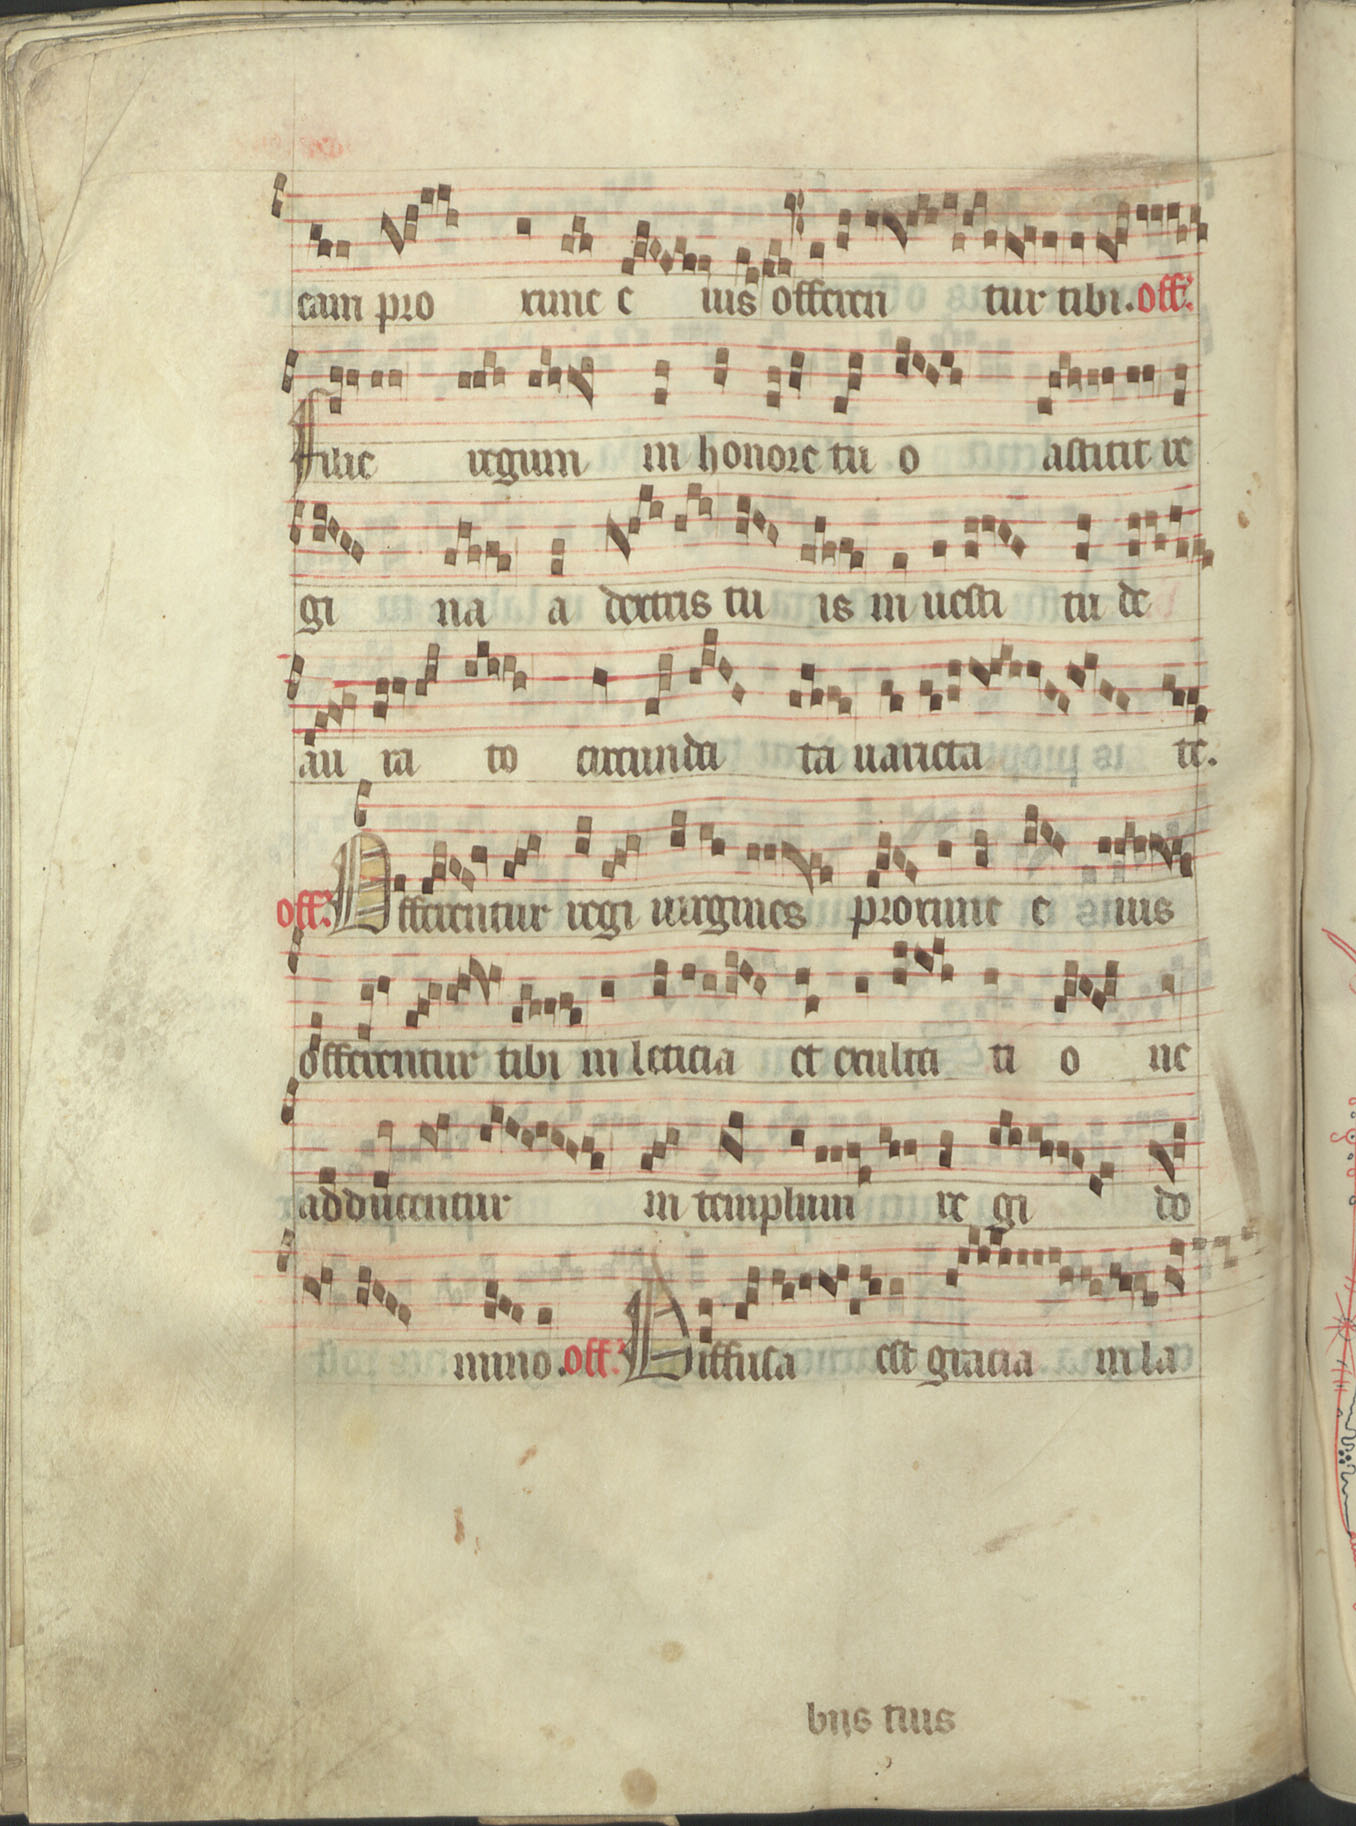 eam pro xime e ius offeren tur tibi. off'.
Filie regum in honore tu o astitit re
gi na a dextris tu is in uesti tu de
au ra to circunda ta uarieta te.
off'. Offerentur regi uirgines proxime e ius
offerentur tibi in leticia et exulta ti o ne
adducentur in templum re gi do
mino. off'. Diffusa est gracia in la
bijs tuis